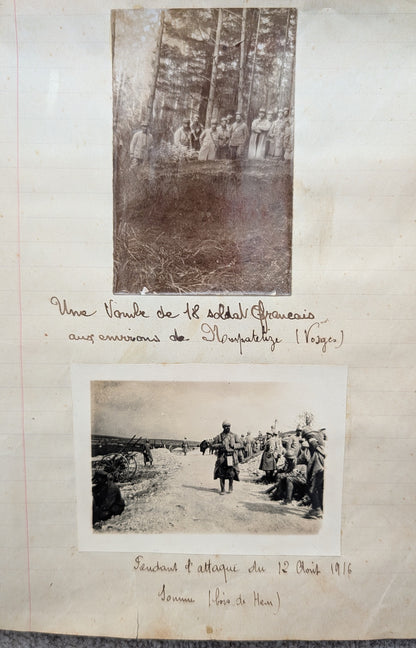 Une Tombe de 18 soldat français
aux environs de Nompatelize (Vosges)
Pendant l'attaque du 12 Août 1916
Somme (bois de Hem)